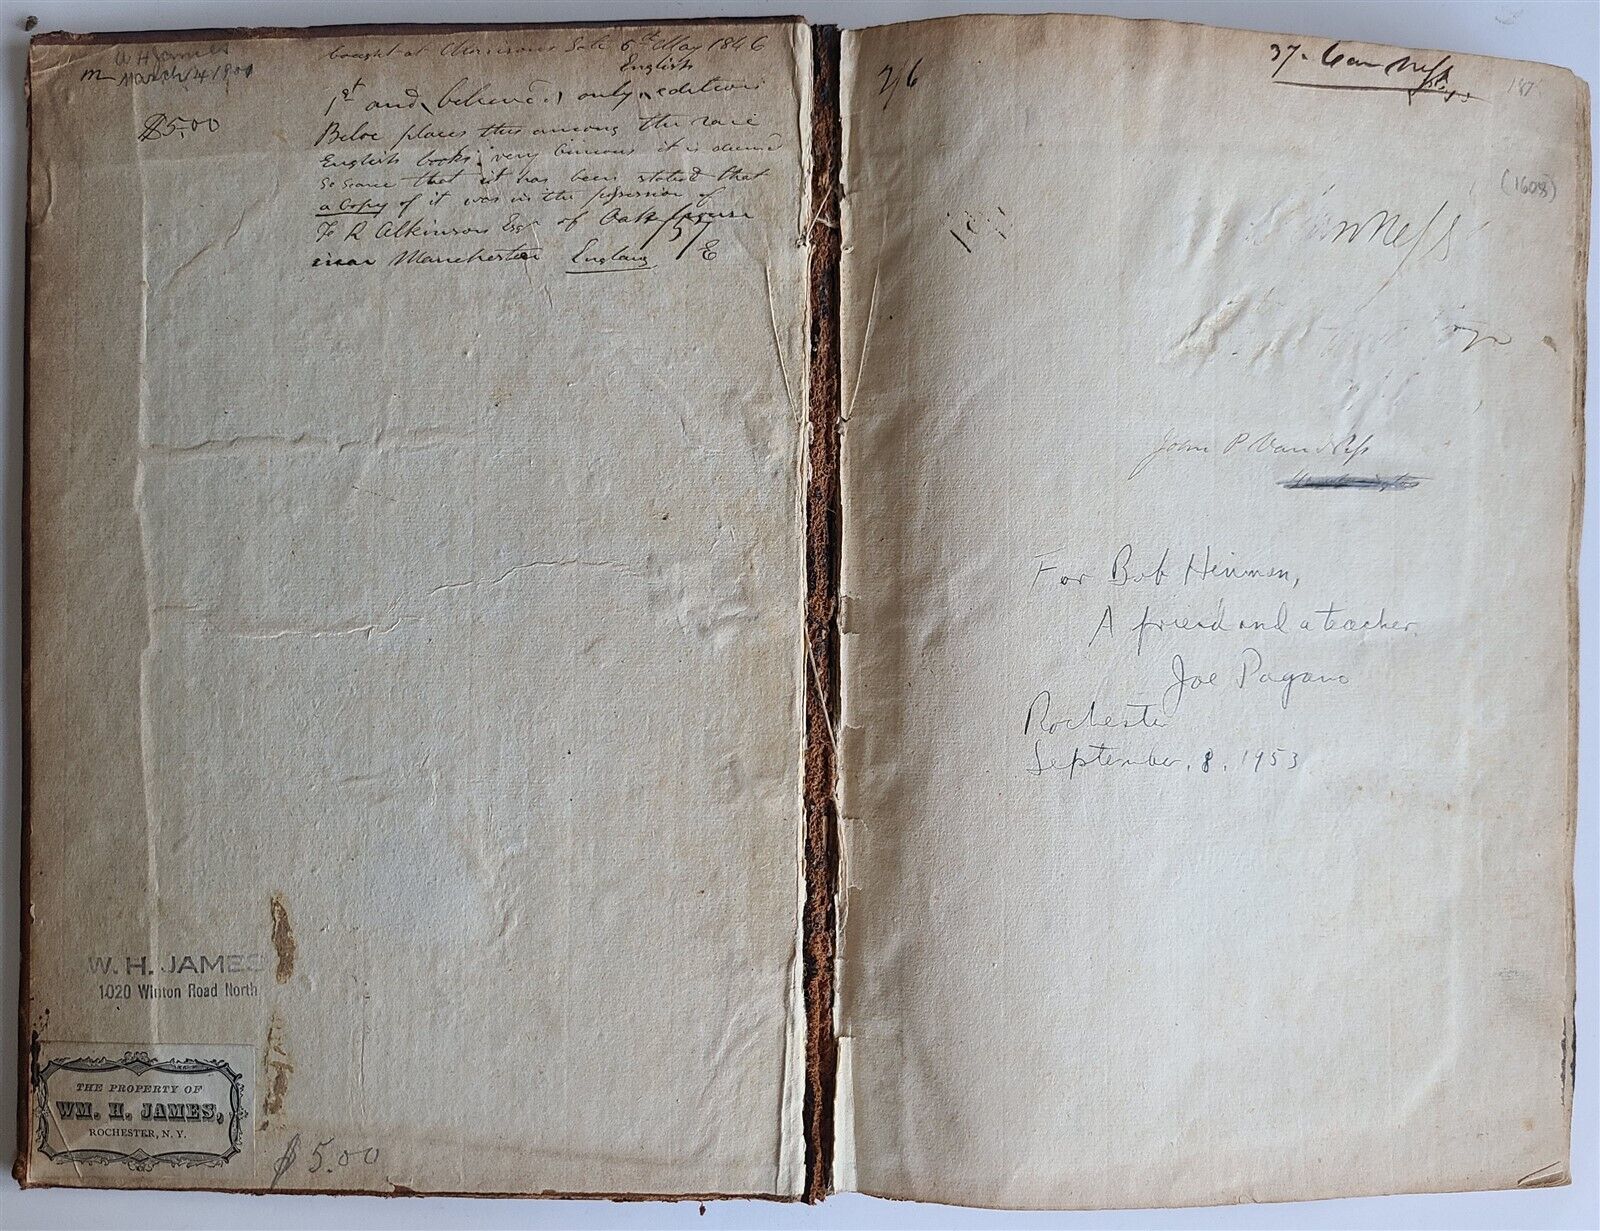 W H James
March 4 1901
$5.00
bought at Sale 6th May 1846
English
1st and believed only edition
Beloe places this among the rare
English books: very curious it is deemed
so scarce that it has been stated that
a Copy of it was in the possession of
R Atkinson Esqr of Oak House
near Manchester England
W. H. JAMES
1020 Winton Road North
THE PROPERTY OF
WM. H. JAMES,
ROCHESTER, N. Y.
$5.00
2/6
37.
(1608)
John P Van Ness
For Bob Hinman,
A friend and a teacher.
Joe Pagano
Rochester
September. 8. 1953